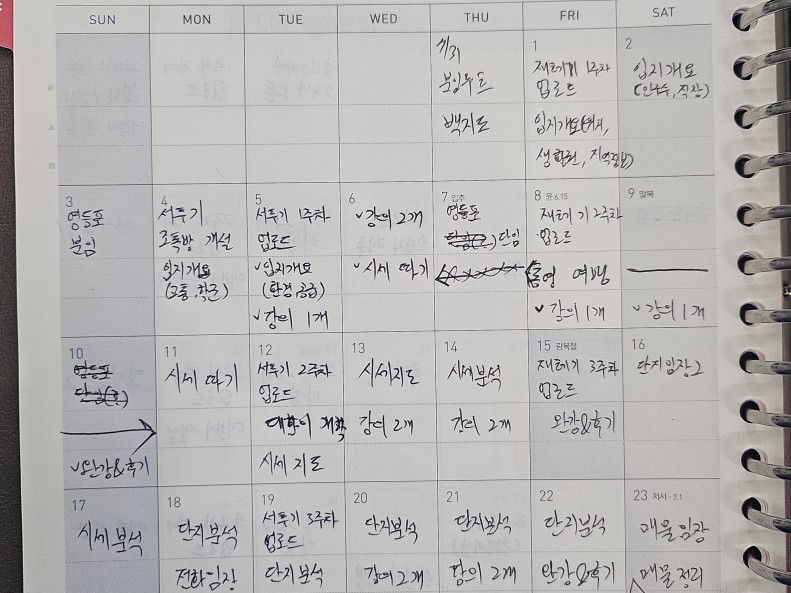 SUN MON TUE WED THU FRI SAT
7/31
분임루트
백지도
1
재테기 1주차
업로드
입지개요(위치,
생활권, 지역정보)
2
입지개요
(인구수, 직장)
3
영등포
분임
4
서투기
조톡방 개설
입지개요
(교통, 학군)
5
서투기 1주차
업로드
✓입지개요
(환경,공급)
✓강의 1개
6
✓강의 2개
✓시세 따기
7 입추
영등포
단임
8 윤 6.15
재테기 2주차
업로드
통영 여행
✓강의 1개
9 말복
✓강의 1개
10
영등포
✓완강&후기
11
시세 따기
12
서투기 2주차
업로드
시세 지도
13
시세지도
강의 2개
14
시세분석
강의 2개
15 광복절
재테기 3주차
업로드
완강&후기
16
단지임장2
17
시세 분석
18
단지분석
전화임장
19
서투기 3주차
업로드
단지분석
20
단지분석
강의 2개
21
단지분석
강의 2개
22
단지분석
완강&후기
23 처서 · 7.1
매물임장
매물 정리